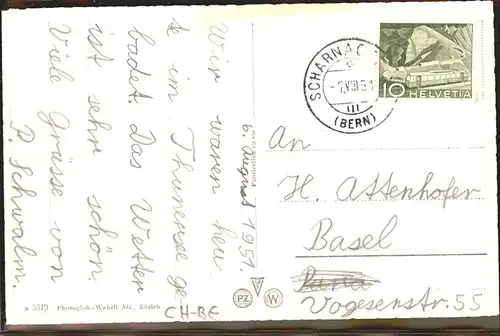 6. August 1951.
Wir waren heu-
te im Thunersee ge-
badet. Das Wetter
ist sehr schön.
Viele Grüsse von
P. Schwalm.
An
H. Attenhofer
Basel
Vogesenstr 55
SCHARNAC
VIII 51
(BERN)
10 HELVETIA
a 3619 Photoglob-Wehrli AG., Zürich
PZ W
CH-BE